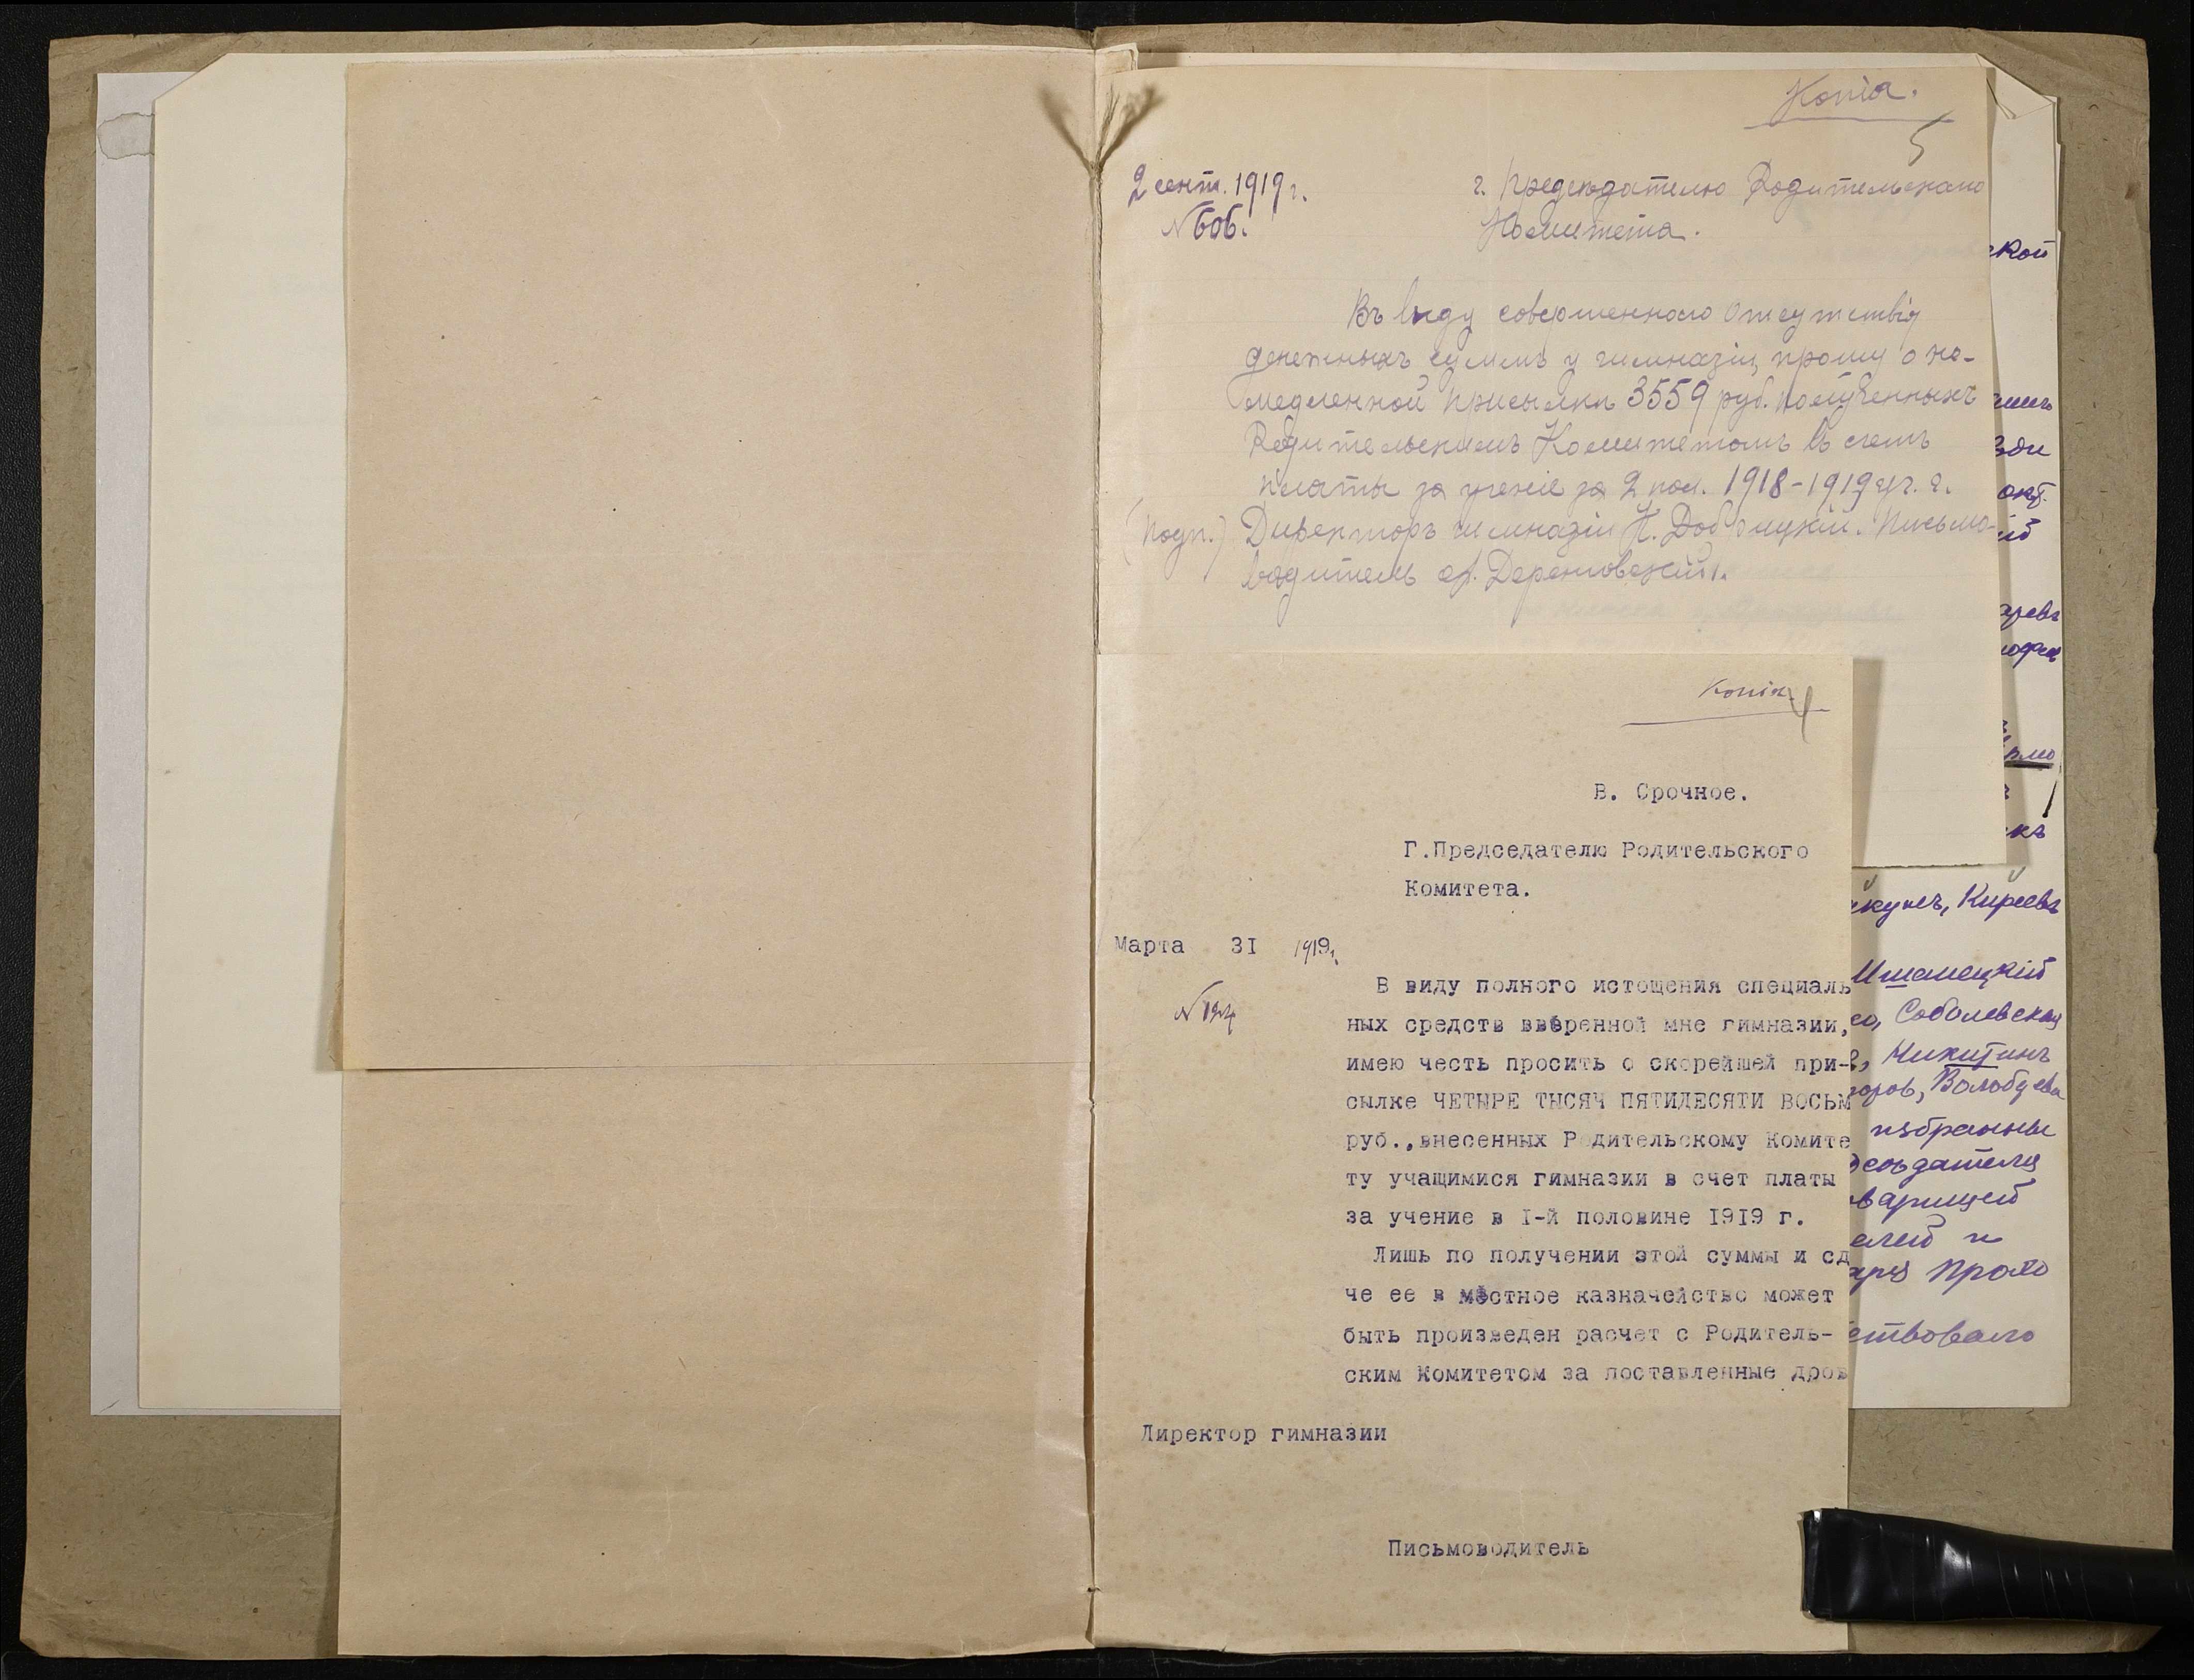 Копія.
5
2 сент. 1919 г.
№ 606.
г. Предсѣдателю Родительскаго
Комитета.
Въ виду совершеннаго отсутствія
денежныхъ суммъ у гимназіи, прошу о не-
медленной присылкѣ 3559 руб. полученныхъ
Родительскимъ Комитетомъ въ счетъ
платы за ученіе за 2 пол. 1918-1919 уч. г.
(Подп.) Директоръ гимназіи Н. Письмо-
водитель
Копія
4
В. Срочное.
Г.Председателю Родительского
Комитета.
Марта 31 1919 г.
№ 124
В виду полного истощения специаль
ных средств вверенной мне гимназии,
имею честь просить о скорейшей при-
сылке ЧЕТЫРЕ ТЫСЯЧ ПЯТИДЕСЯТИ ВОСЬМ
руб.,внесенных Родительскому Комите
ту учащимися гимназии в счет платы
за учение в I-й половине 1919 г.
Лишь по получении этой суммы и сд
че ее в местное казначейство может
быть произведен расчет с Родитель-
ским Комитетом за поставленные дров
Директор гимназии
Письмоводитель
ской
Киреевъ
Соболевская
Никитинъ
избранны
ствовало